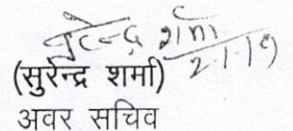 सुरेन्द्र शर्मा
2.1.19
(सुरेन्द्र शर्मा)
अवर सचिव